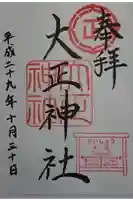 奉拝
大正神社
平成二十九年十月三十日